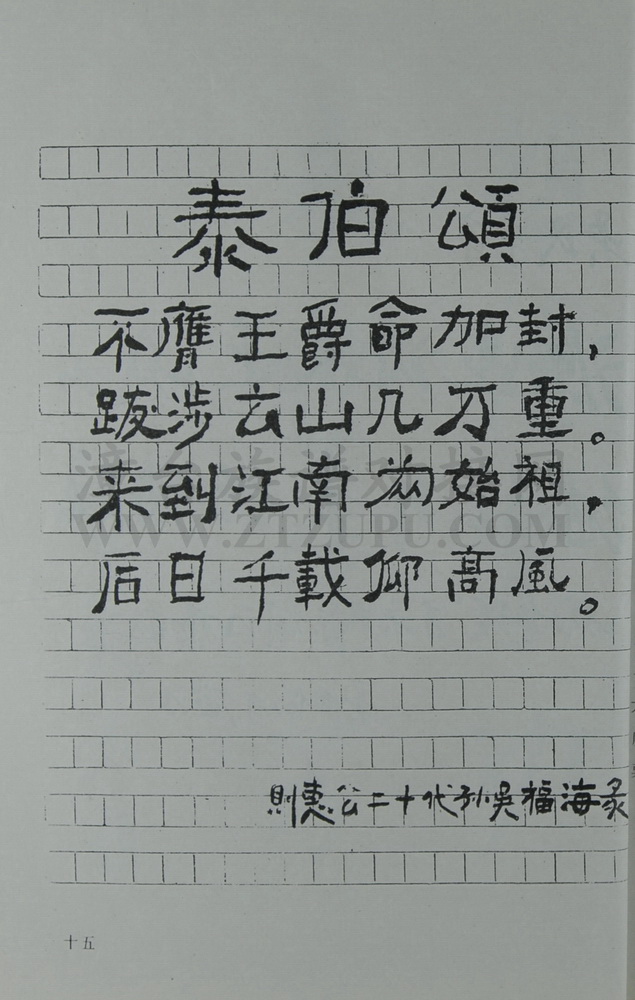 泰伯頌
不膺王爵命加封，
跋涉云山几万重。
来到江南为始祖，
后日千載仰高風。
則惠公二十代孙吳福海
WWW.ZTZUPU.COM
十五